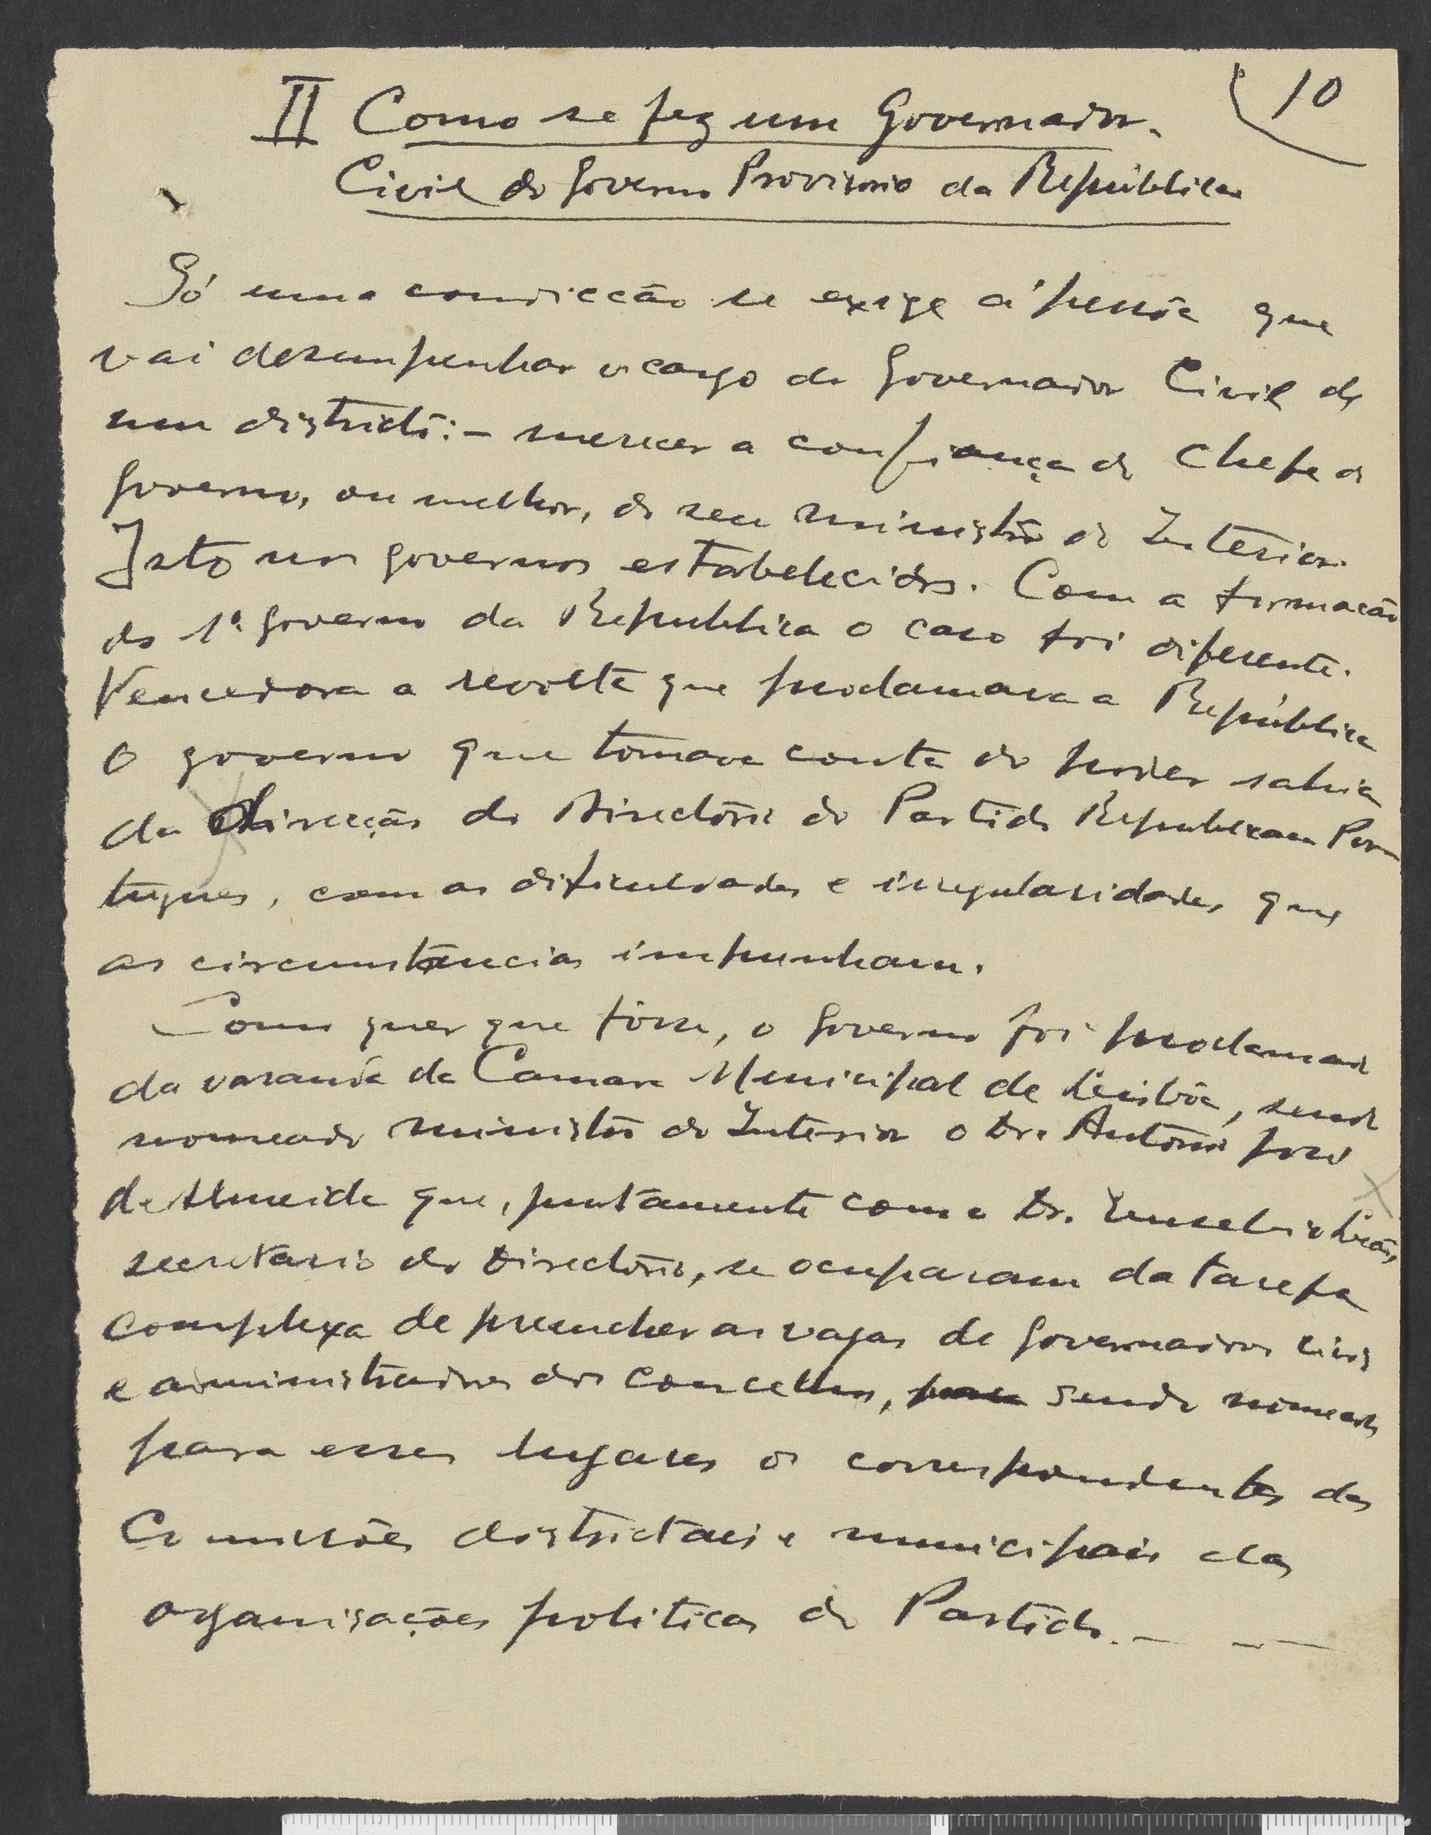 10
II Como se fez um Governador
Civil do Governo Provisorio da República
Só uma condicção se exige á pessôa que
vai desempenhar o cargo de Governador Civil de
um districto:- merecer a confiança do Chefe do
Governo, ou melhor, do seu ministro do Interior.
Isto nos governos estabelecidos. Com a formação
do 1º governo da Republica o caso foi diferente.
Vencedora a revolta que proclamava a República
o governo que tomava conta do poder sahia
da Direcção do Directório do Partido Republicano Por
tuguês, com as dificuldades e irregularidades que
as circumstâncias impunham.
Como quer que fôsse, o Governo foi proclamado
da varanda da Camara Municipal de Lisbôa, sendo
nomeado ministro do Interior o Dr. António José
de Almeida que, juntamente com o Dr. Eusebio Leão,
secretário do Directório, se ocuparam da tarefa
complexa de preencher as vagas de Governadores civis
e administradores dos concelhos, sendo nomeados
para esses lugares os correspondentes das
Comissões districtais e municipais das
organisações politicas do Partido. -